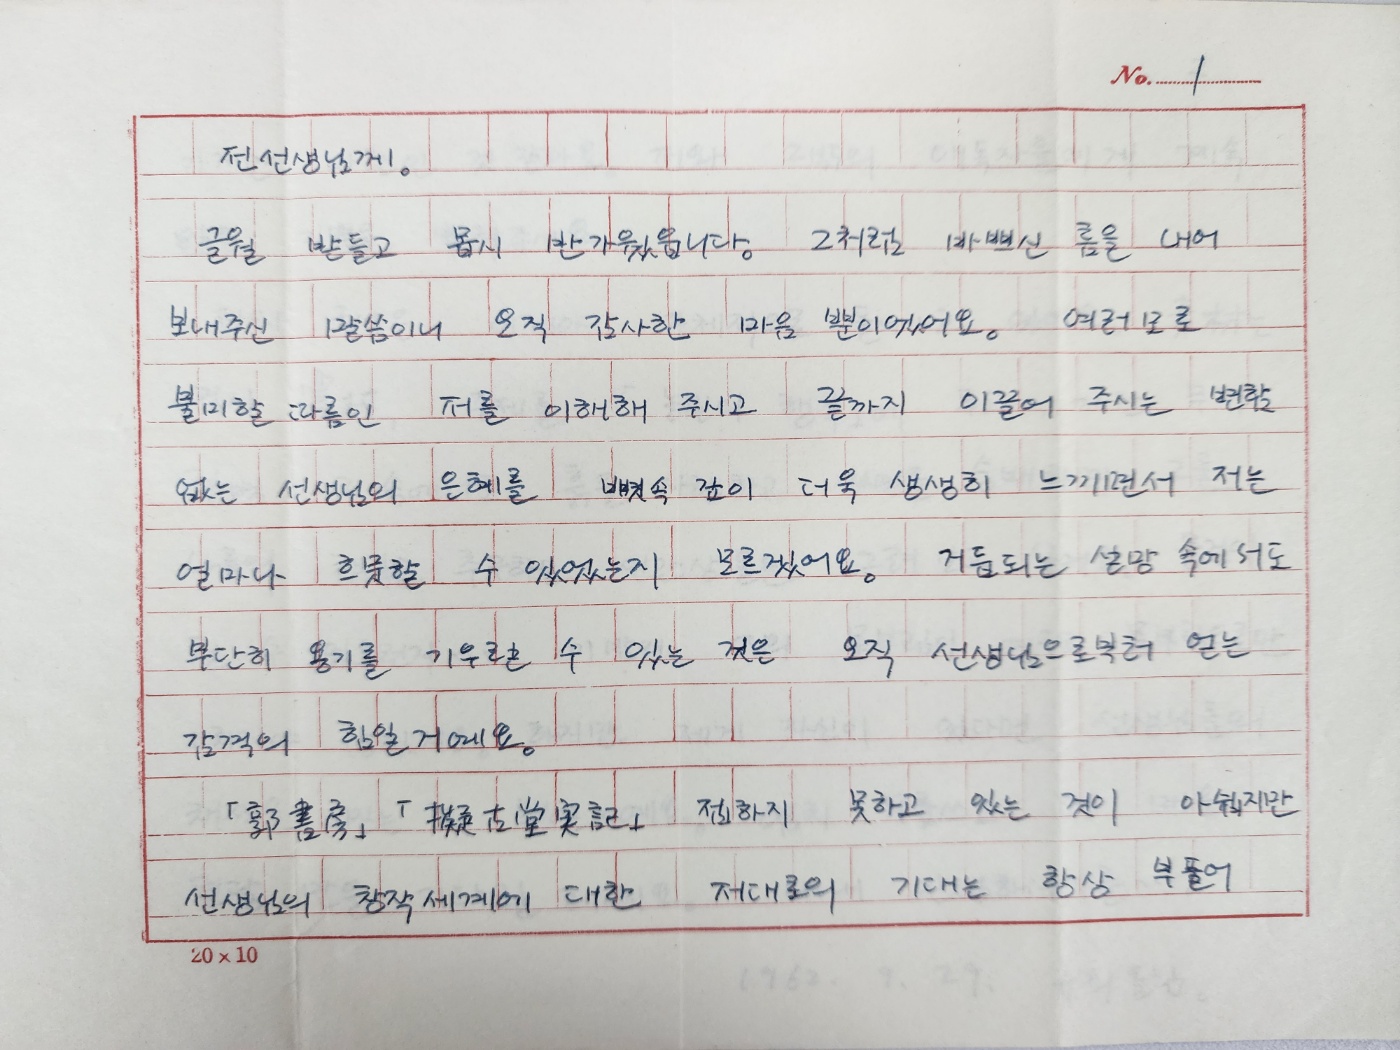 No. 1
전선생님께。
글월 받들고 몹시 반가웠읍니다。 그처럼 바쁘신 틈을 내어
보내주신 말씀이니 오직 감사한 마음 뿐이었어요。 여러모로
불미할 따름인 저를 이해해 주시고 끝까지 이끌어 주시는 변함
없는 선생님의 은혜를 뼛속 깊이 더욱 생생히 느끼면서 저는
얼마나 흐뭇할 수 있었는지 모르겠어요。 거듭되는 실망 속에서도
부단히 용기를 기우를 수 있는 것은 오직 선생님으로부터 얻는
감격의 힘일 거예요。
「郭書房」「擬古堂実記」 접하지 못하고 있는 것이 아쉽지만
선생님의 창작세계에 대한 저대로의 기대는 항상 부풀어
20×10